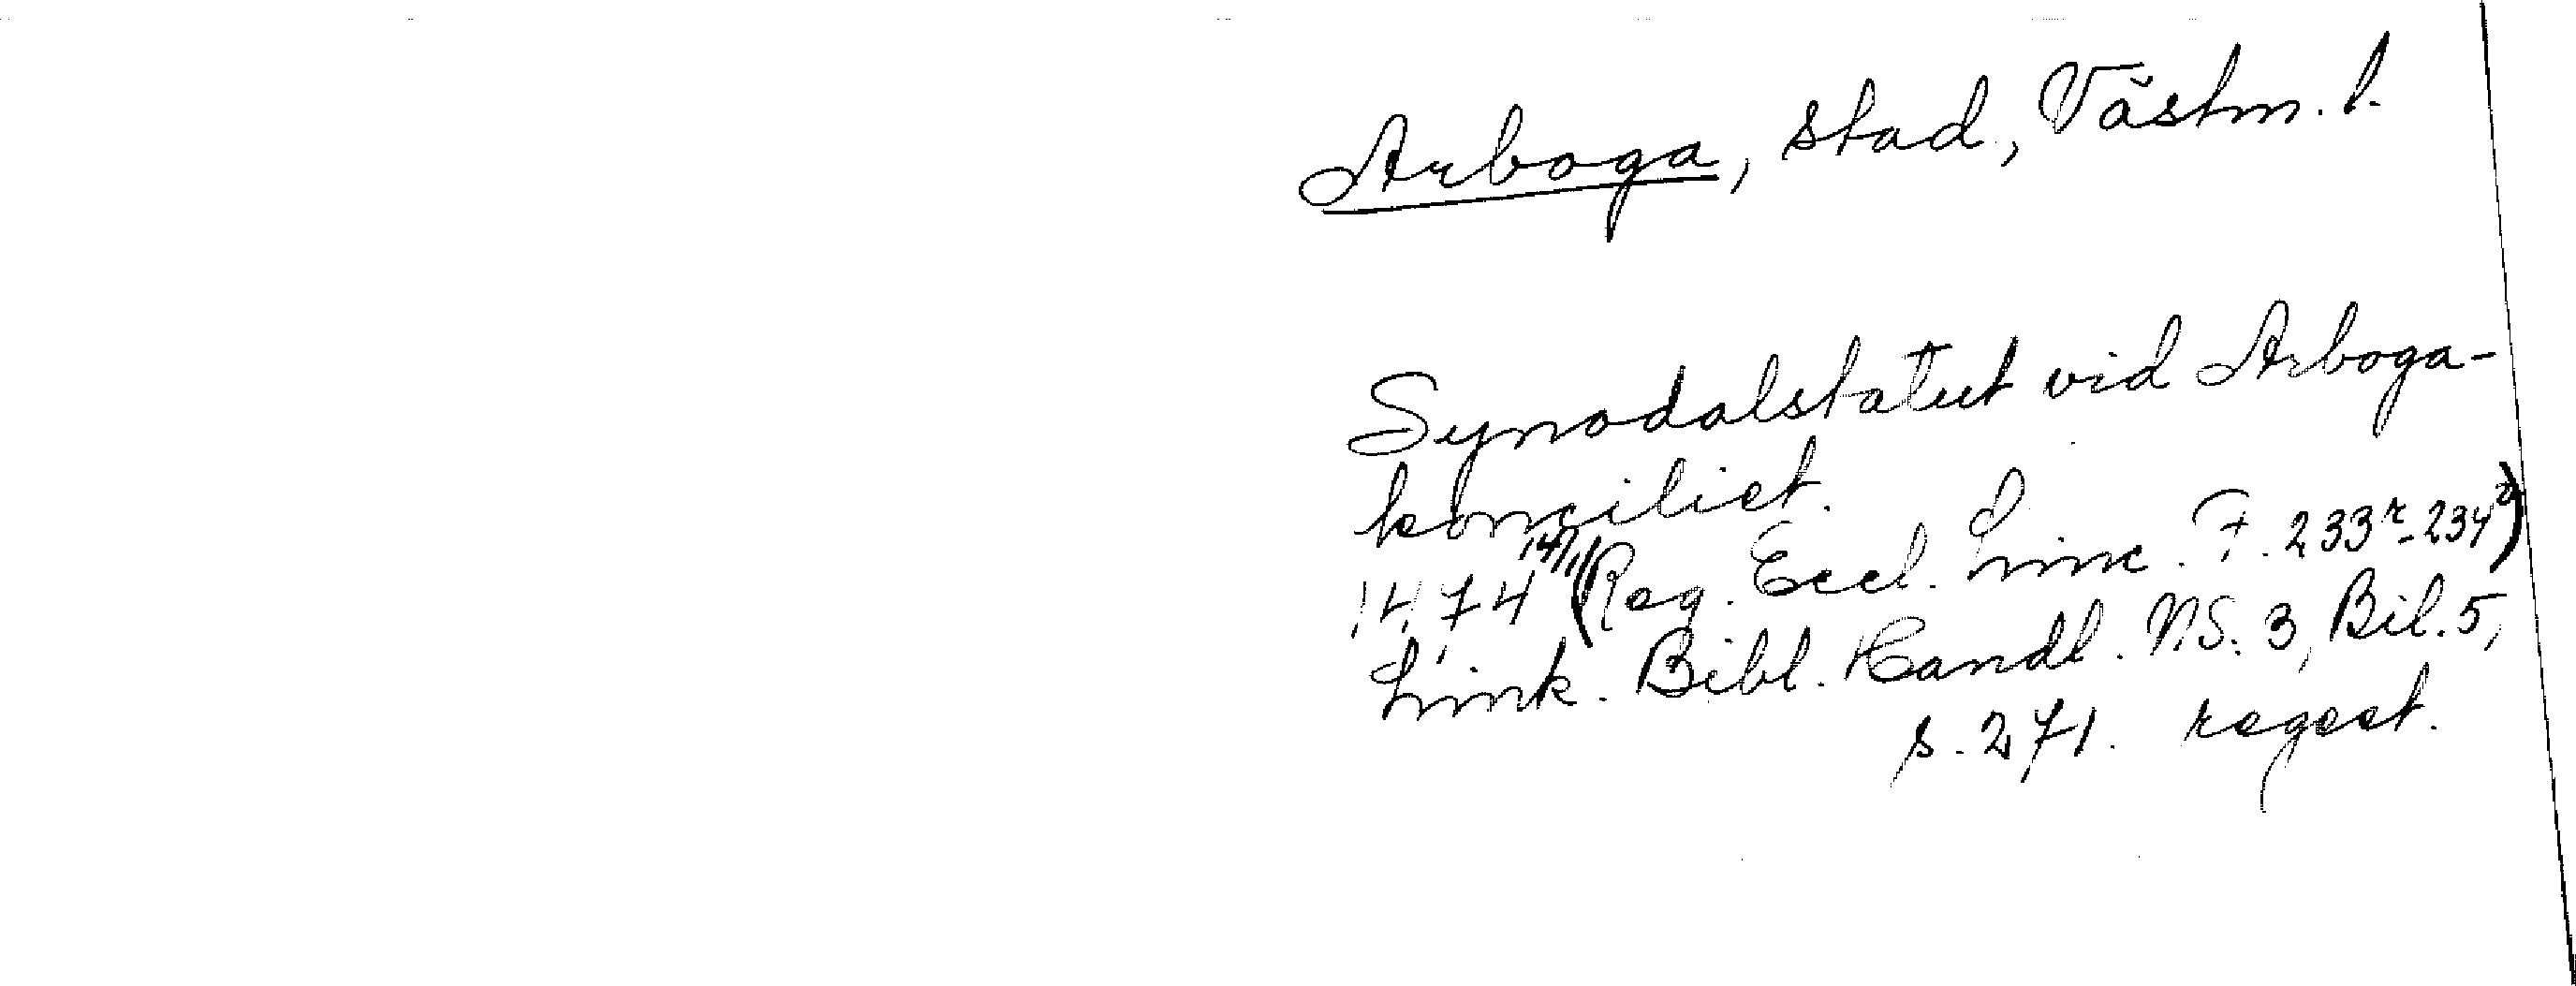 Arboga, stad, Västm. l.
Synodalstatut vid Arboga-
konciliet.
1474 14/11 (Reg. Eccl. Linc. F. 233r-234v)
Link. Bibl. Handl. N.S. 3, Bil. 5,
s. 271. regest.